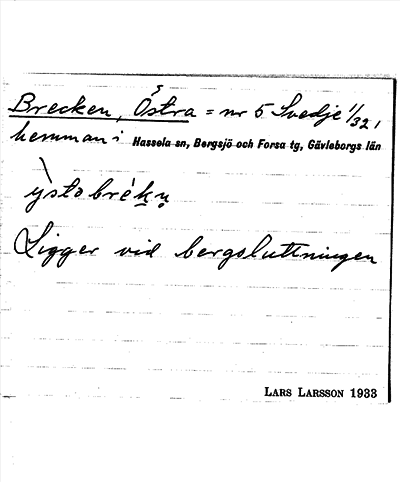 Brecken, Östra = nr 5 Svedje 1/32,
hemman i Hassela sn, Bergsjö och Forsa tg, Gävleborgs län
ỳstabrèkn̥
Ligger vid bergsluttningen
LARS LARSSON 1933